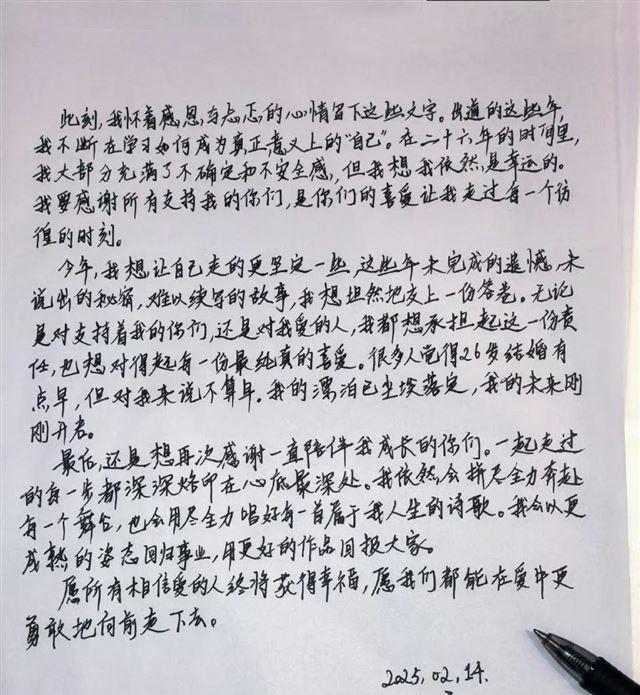 此刻,我怀着感恩与忐忑的心情留下这些文字。出道的这些年,
我不断在学习如何成为真正意义上的“自己”。在二十六年的时间里,
我大部分充满了不确定和不安全感,但我想我依然是幸运的。
我要感谢所有支持我的你们,是你们的喜爱让我走过每一个彷
徨的时刻。
今年,我想让自己走的更坚定一些,这些年未完成的遗憾,未
说出的秘密,难以续写的故事,我想坦然地交上一份答卷。无论
是对支持着我的你们,还是对我爱的人,我都想承担起这一份责
任,也想对得起每一份最纯真的喜爱。很多人觉得26岁结婚有
点早,但对我来说不算早。我的漂泊已尘埃落定,我的未来刚
刚开启。
最后,还是想再次感谢一直陪伴我成长的你们。一起走过
的每一步都深深烙印在心底最深处。我依然会拼尽全力奔赴
每一个舞台,也会用尽全力唱好每一首属于我人生的诗歌。我会以更
成熟的姿态回归事业,用更好的作品回报大家。
愿所有相信爱的人终将获得幸福,愿我们都能在爱中更
勇敢地向前走下去。
2025.02.14.